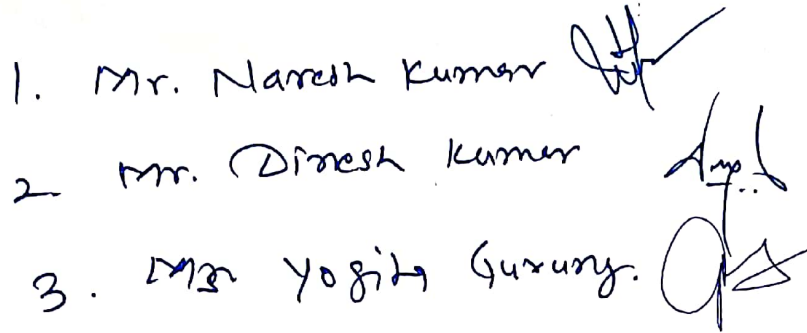 1. Mr. Naresh Kumar
2 Mr. Dinesh Kumar
3. Yogita